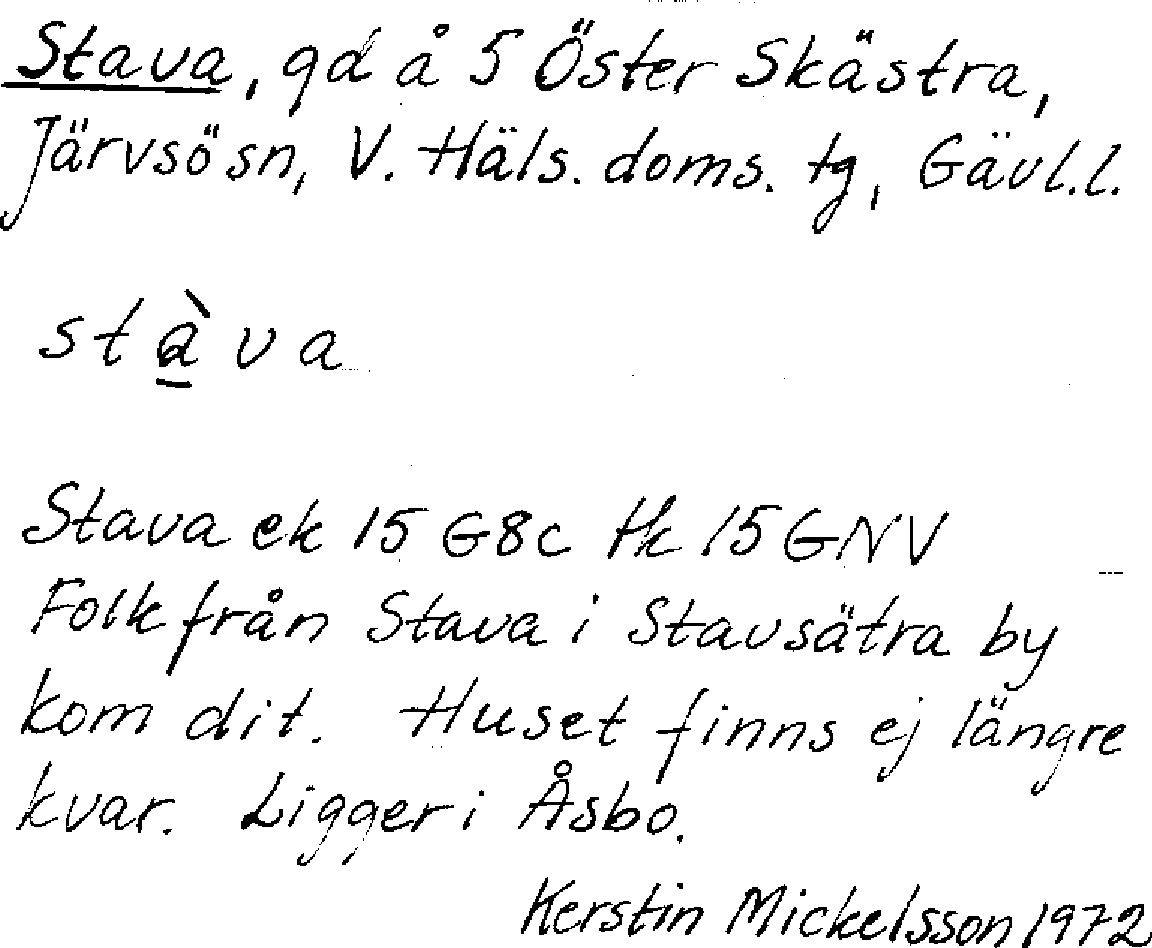 Stava, gd å 5 Öster Skästra,
Järvsö sn, V. Häls. doms. tg, Gävl.l.
stàva
Stava ek 15 G8c tk 15 GNV
Folk från Stava i Stavsätra by
kom dit. Huset finns ej längre
kvar. Ligger i Åsbo.
Kerstin Mickelsson 1972